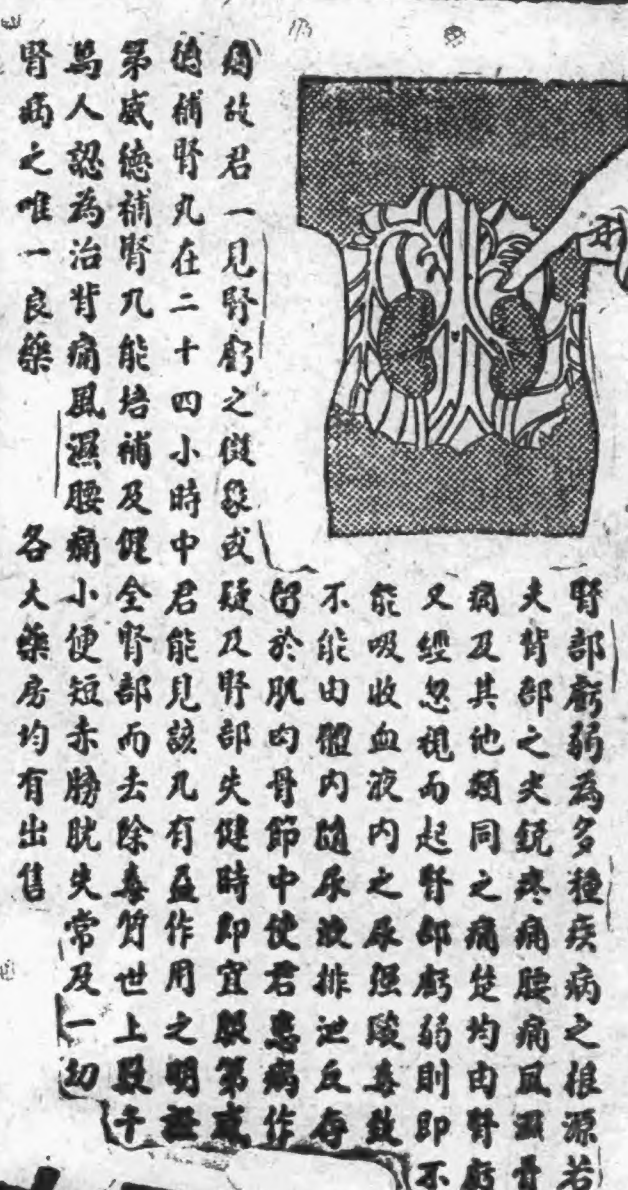 腎部虧弱為多種疾病之根源若
夫背部之尖銳疼痛腰痛風濕骨
痛及其他類同之痛楚均由腎虧
又經忽視而起腎部虧弱則即不
能吸收血液內之尿酸毒致
不能由體內隨尿液排泄反存
留於肌肉骨節中使君患病作
痛故君一見腎虧之徵象或疑及腎部失健時即宜服第威
德補腎丸在二十四小時中君能見該丸有益作用之明證
第威德補腎丸能培補及健全腎部而去除毒質世上千
萬人認為治背痛風濕腰痛小便短赤膀胱失常及一切
腎病之唯一良藥 各大藥房均有出售